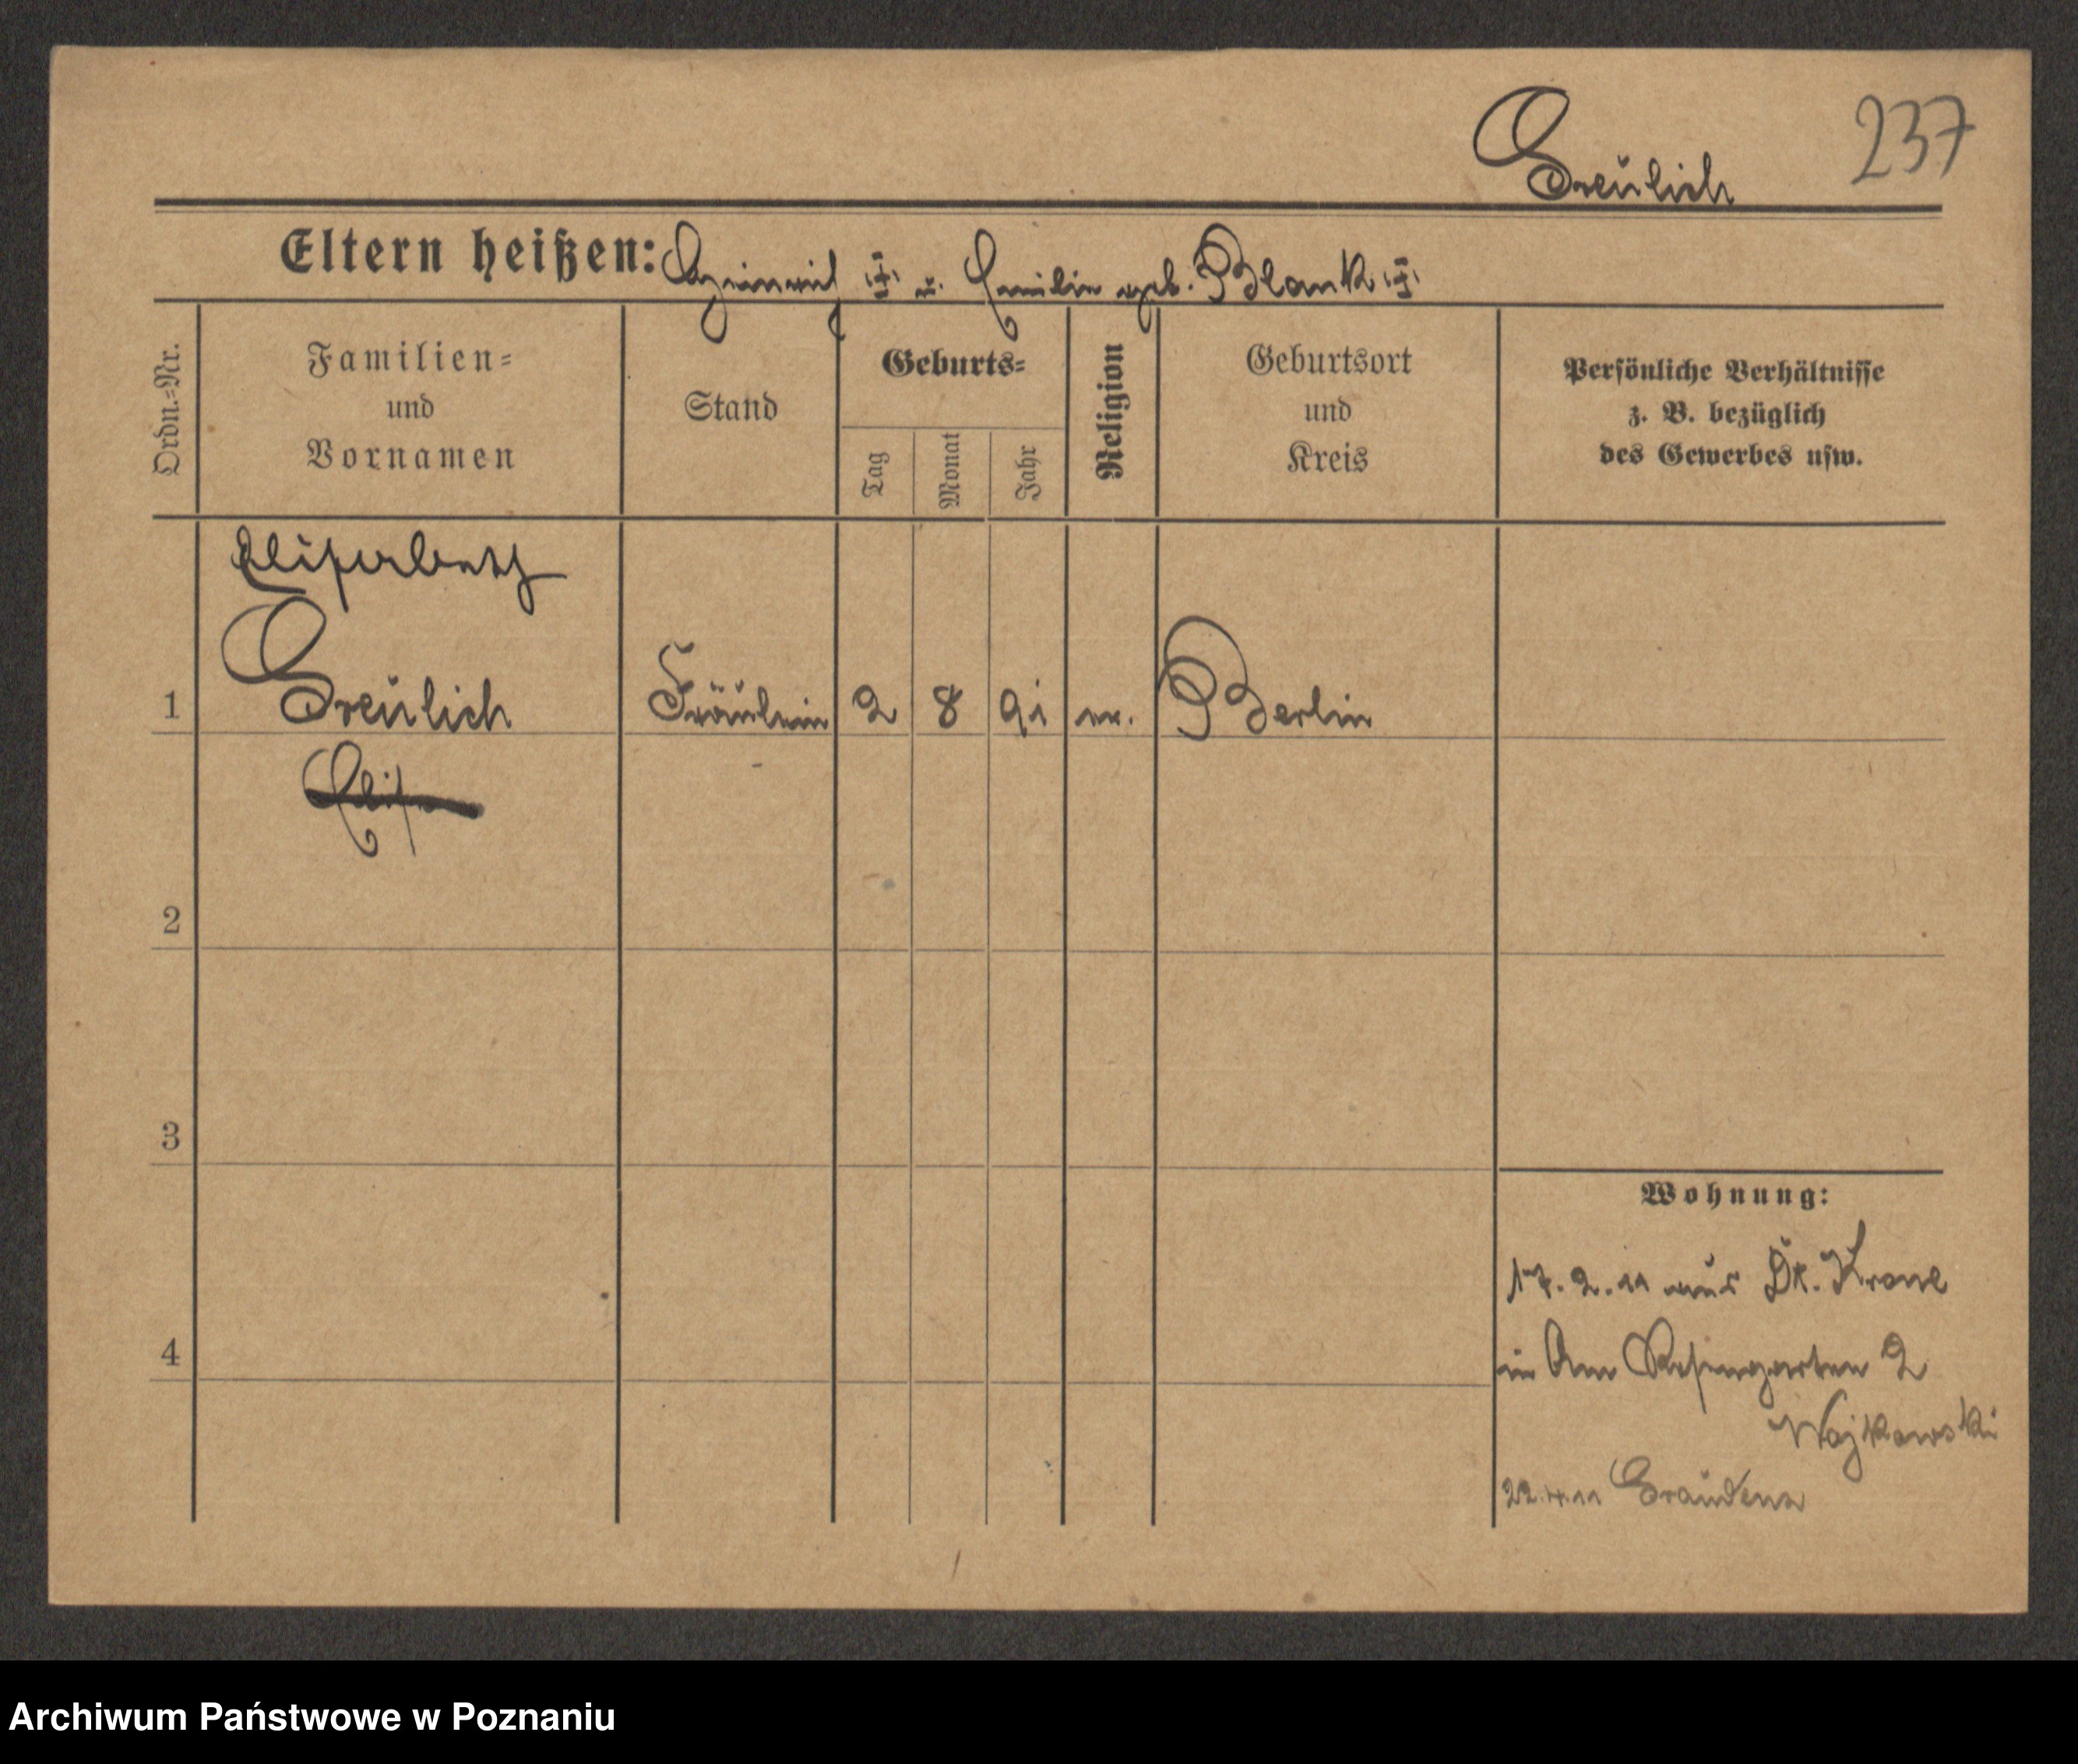 237
Greulich
Eltern heißen: Heinrich † u. Emilie geb. Blank †
Ordn.-Nr.
Familien-
und
Vornamen
Stand
Geburts-
Tag
Monat
Jahr
Religion
Geburtsort
und
Kreis
Persönliche Verhältnisse
z. B. bezüglich
des Gewerbes usw.
Elisabeth
1 Greulich Fräulein 2 8 91 ev. Berlin
2
3
Wohnung:
17.2.11 aus Dt. Krone
4
in Am Rosengarten 2
Wojkowski
22.4.11 Graudenz
Archiwum Państwowe w Poznaniu